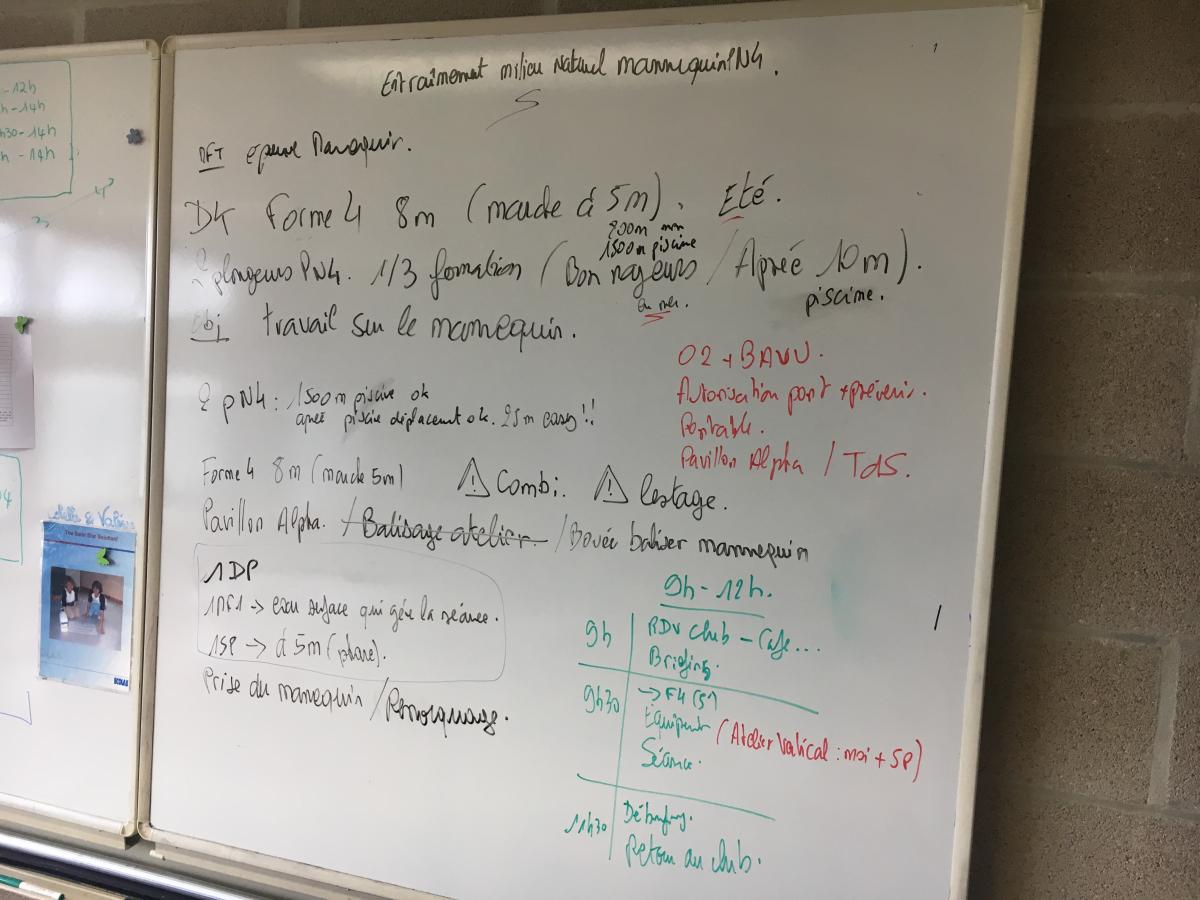 -12h
h-14h
h30-14h
h-14h
Entraînement milieu Naturel mannequin PN4.
DFT épreuve Mannequin.
D4 Forme 4 8m (marche à 5m). Eté.
200m mn
1500m piscine
2 plongeurs PN4. 1/3 formation (Bon nageurs / Apnée 10m).
en mer.
piscine.
Obj travail sur le mannequin.
O2 + BAVU.
Autorisation port + prévenir.
Portable.
Pavillon Alpha / TdS.
2 pN4: 1500m piscine ok
apnée piscine déplacement ok. 25m easy!!
Forme 4 8m (marche 5m) ⚠ Combi. ⚠ lestage.
Pavillon Alpha. / Balisage atelier / Bouée baliser mannequin
1DP
1MF1 → surface qui gère la séance.
1SP → à 5m (phare).
Prise du mannequin / Remorquage.
9h-12h.
9h RDV club - Cafe...
Briefing.
9h30 → F4
Equipent (Atelier Vertical: moi + SP)
Séance.
11h30 Débriefing.
Retour au club.